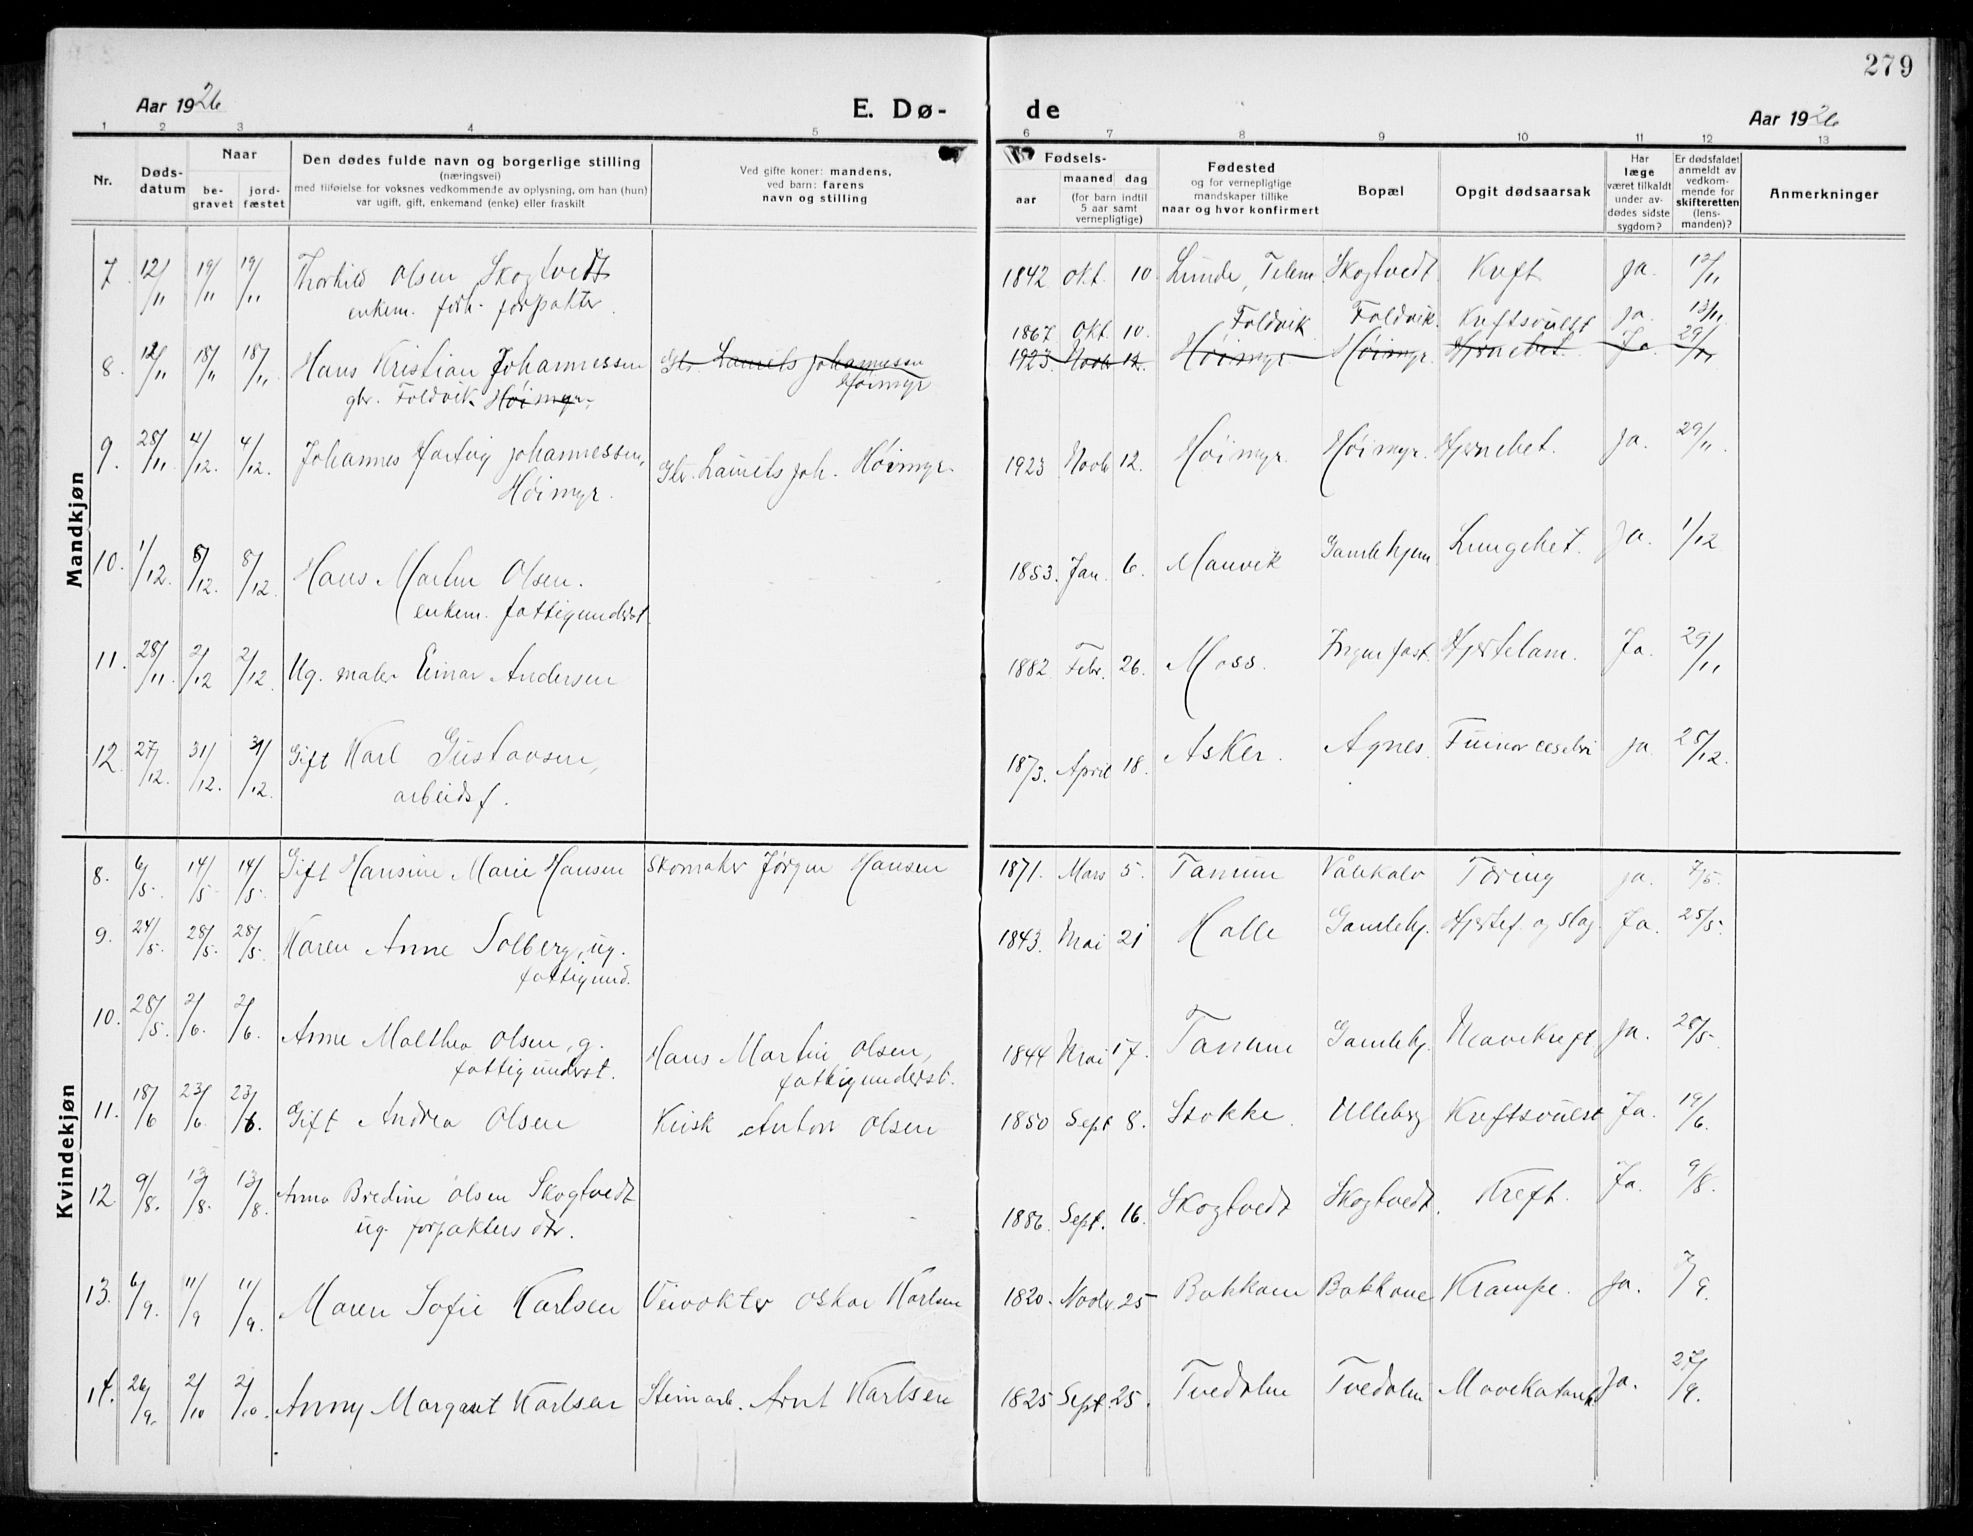 279
Aar 1926
E. Dø-
de
Aar 1926
1 2 3 4 5 6 7 8 9 10 11 12 13
Nr.
Døds-
datum
Naar
be-
gravet
jord-
fæstet
Den dødes fulde navn og borgerlige stilling
(næringsvei)
med tilføielse for voksnes vedkommende av oplysning, om han (hun)
var ugift, gift, enkemand (enke) eller fraskilt
Ved gifte koner: mandens,
ved barn: farens
navn og stilling
Fødsels-
aar
maaned dag
(for barn indtil
5 aar samt
vernepligtige)
Fødested
og for vernepligtige
mandskaper tillike
naar og hvor konfirmert
Bopæl
Opgit dødsaarsak
Har
læge
været tilkaldt
under av-
dødes sidste
sygdom?
Er dødsfaldet
anmeldt av
vedkom-
mende for
skifteretten
(lens-
manden)?
Anmerkninger
Mandkjøn
7 12/11 19/11 19/11 Olsen Skogtvedt 1842 Okt. 10. Lunde, Telem. Skogtvedt Kreft ja. 12/11
enkem. forh. forpakter
1867 Okt. 10. Foldvik Foldvik. Kreftsvulst ja. 13/11
8. 12/11 18/11 18/11 Hans Kristian Johannessen Gbr. Laurits Johannessen 1923 Novbr 12. Høimyr Høimyr. Hjernebet. Ja. 29/11
Høimyr
gbr. Foldvik Høimyr.
9. 28/11 4/12. 4/12. Johannes Hartvig Johannessen, Gbr. Laurits Joh. Høimyr. 1923 Novb 12. Høimyr. Høimyr. Hjernebet. Ja. 29/11
Høimyr.
10. 1/12. 8/12. 8/12. Hans Martin Olsen. 1853. Jan. 6. Manvik Gamlehjem Lungebet. Ja. 1/12
enkem. fattigunderst.
11. 28/11. 2/12 2/12. Ug. maler Einar Andersen 1882 Febr. 26. Moss. Hjertelam. Ja. 29/11
12. 27/12. 31/12. 31/12. Gift Karl Gustavsen, 1873. April 18. Asker. Agnes. ja. 28/12.
arbeidsf.
Kvindekjøn
8. 6/5. 14/5 14/5. Gift Hansine Marie Hansen Skomaker Jørgen Hansen 1871. Mars 5. Tanum Tæring ja. 7/5.
9. 24/5. 28/5. 28/5. Karen Anne Solberg, ug. 1843. Mai 21 Halle Gamlehj. Hjertef. og slag Ja. 25/5.
fattigund.
10. 28/5. 2/6. 2/6. Anne Malthea Olsen, g. Hans Martin Olsen, 1844 Mai 17. Tanum Gamlehj. Mavekreft Ja. 28/5.
fattigunderst. fattigunderst.
11. 18/6 23/6. 23/6. Gift Andrea Olsen Kusk Anton Olsen 1850 Sept 8. Stokke. Ulleberg Kreftsvulst Ja. 19/6.
12 9/8. 13/8. 13/8. Anna Bredine Olsen Skogtvedt 1886. Sept. 16. Skogtvedt Skogtvedt. Kreft. Ja. 9/8.
ug. forpakters dtr.
13. 6/9. 11/9 11/9. Maren Sofie Karlsen Veivokter Oskar Karlsen 1820. Novbr. 25 Bakkane Bakkane Krampe. ja. 7/9.
14. 26/9. 2/10 2/10. Anny Margaret Karlsen Stenarb. Arnt Karlsen 1825 Sept. 25. Tvedalen Tvedalen Mavekatarrh Ja. 27/9.